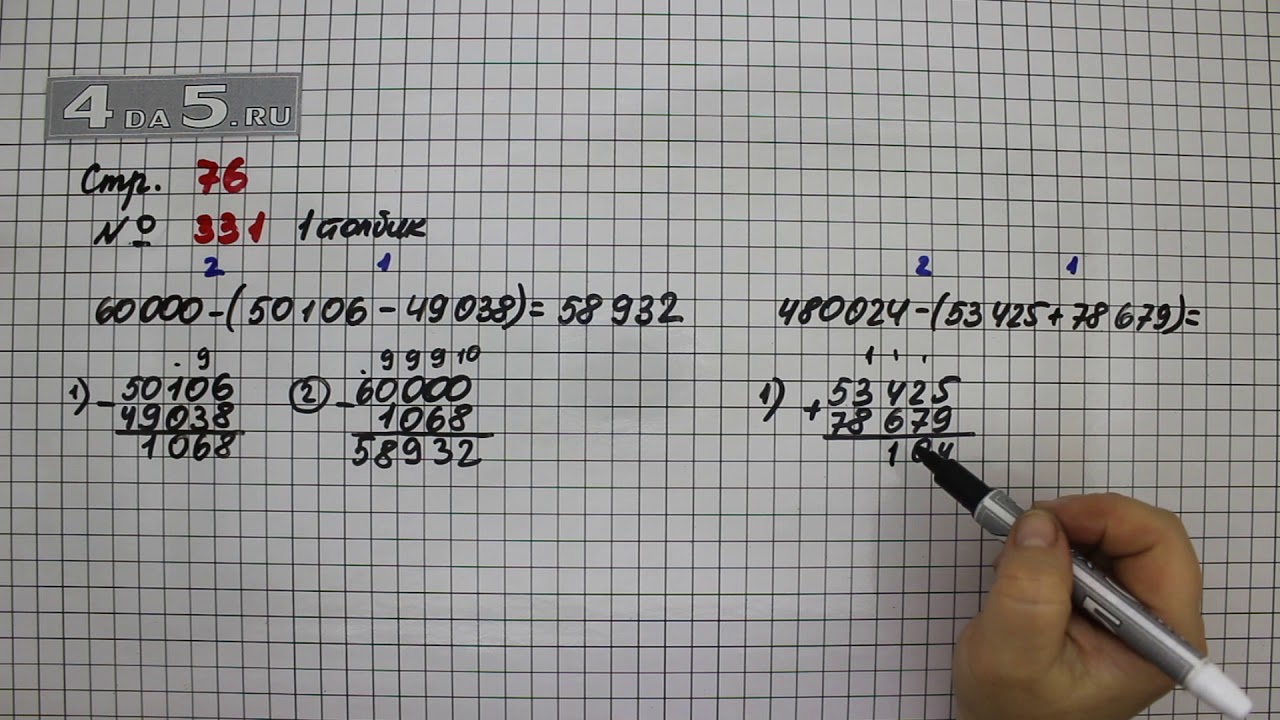 4DA5.RU
Стр. 76
№ 331 1 столбик
2 1
60000-(50106-49038)=58932
. 9
1) - 50106
49038
1068
. 9 9 9 10
2) - 60000
1068
58932
2 1
480024-(53425+78679)=
1 . .
1) + 53425
78679
104